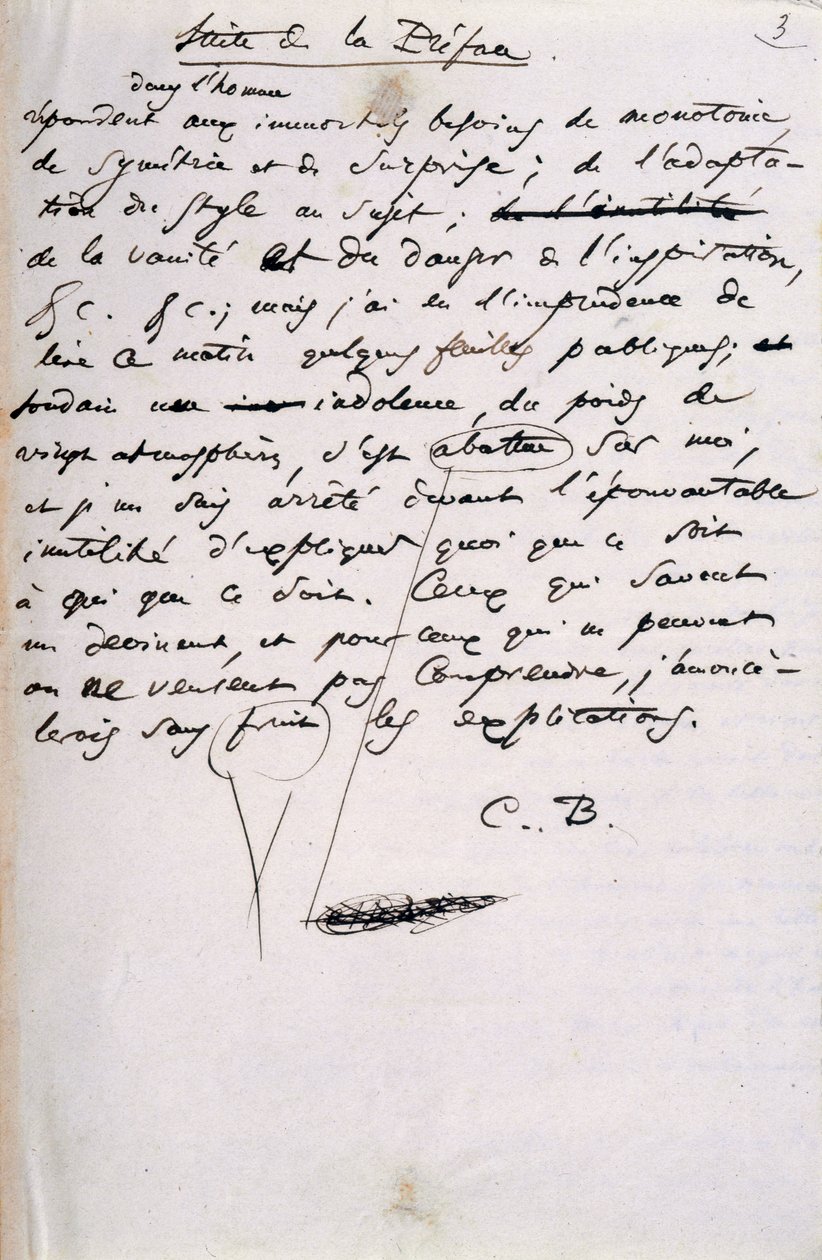 3
Suite de la Préface.
dans l'homme
répondent aux immortels besoins de monotonie,
de symétrie et de surprise; de l'adapta-
tion du style au sujet; de l'inutilité
de la vanité et du danger de l'inspiration,
&c. &c.; mais j'ai eu l'imprudence de
lire ce matin quelques feuilles publiques; et
soudain une indolence, du poids de
vingt atmosphères, s'est abattue sur moi,
et je me suis arrêté devant l'épouvantable
inutilité d'expliquer quoi que ce soit
à qui que ce soit. Ceux qui savent
me devinent, et pour ceux qui ne peuvent
ou ne veulent pas comprendre, j'amoncè-
lerais sans fruit les explications.
C. B.